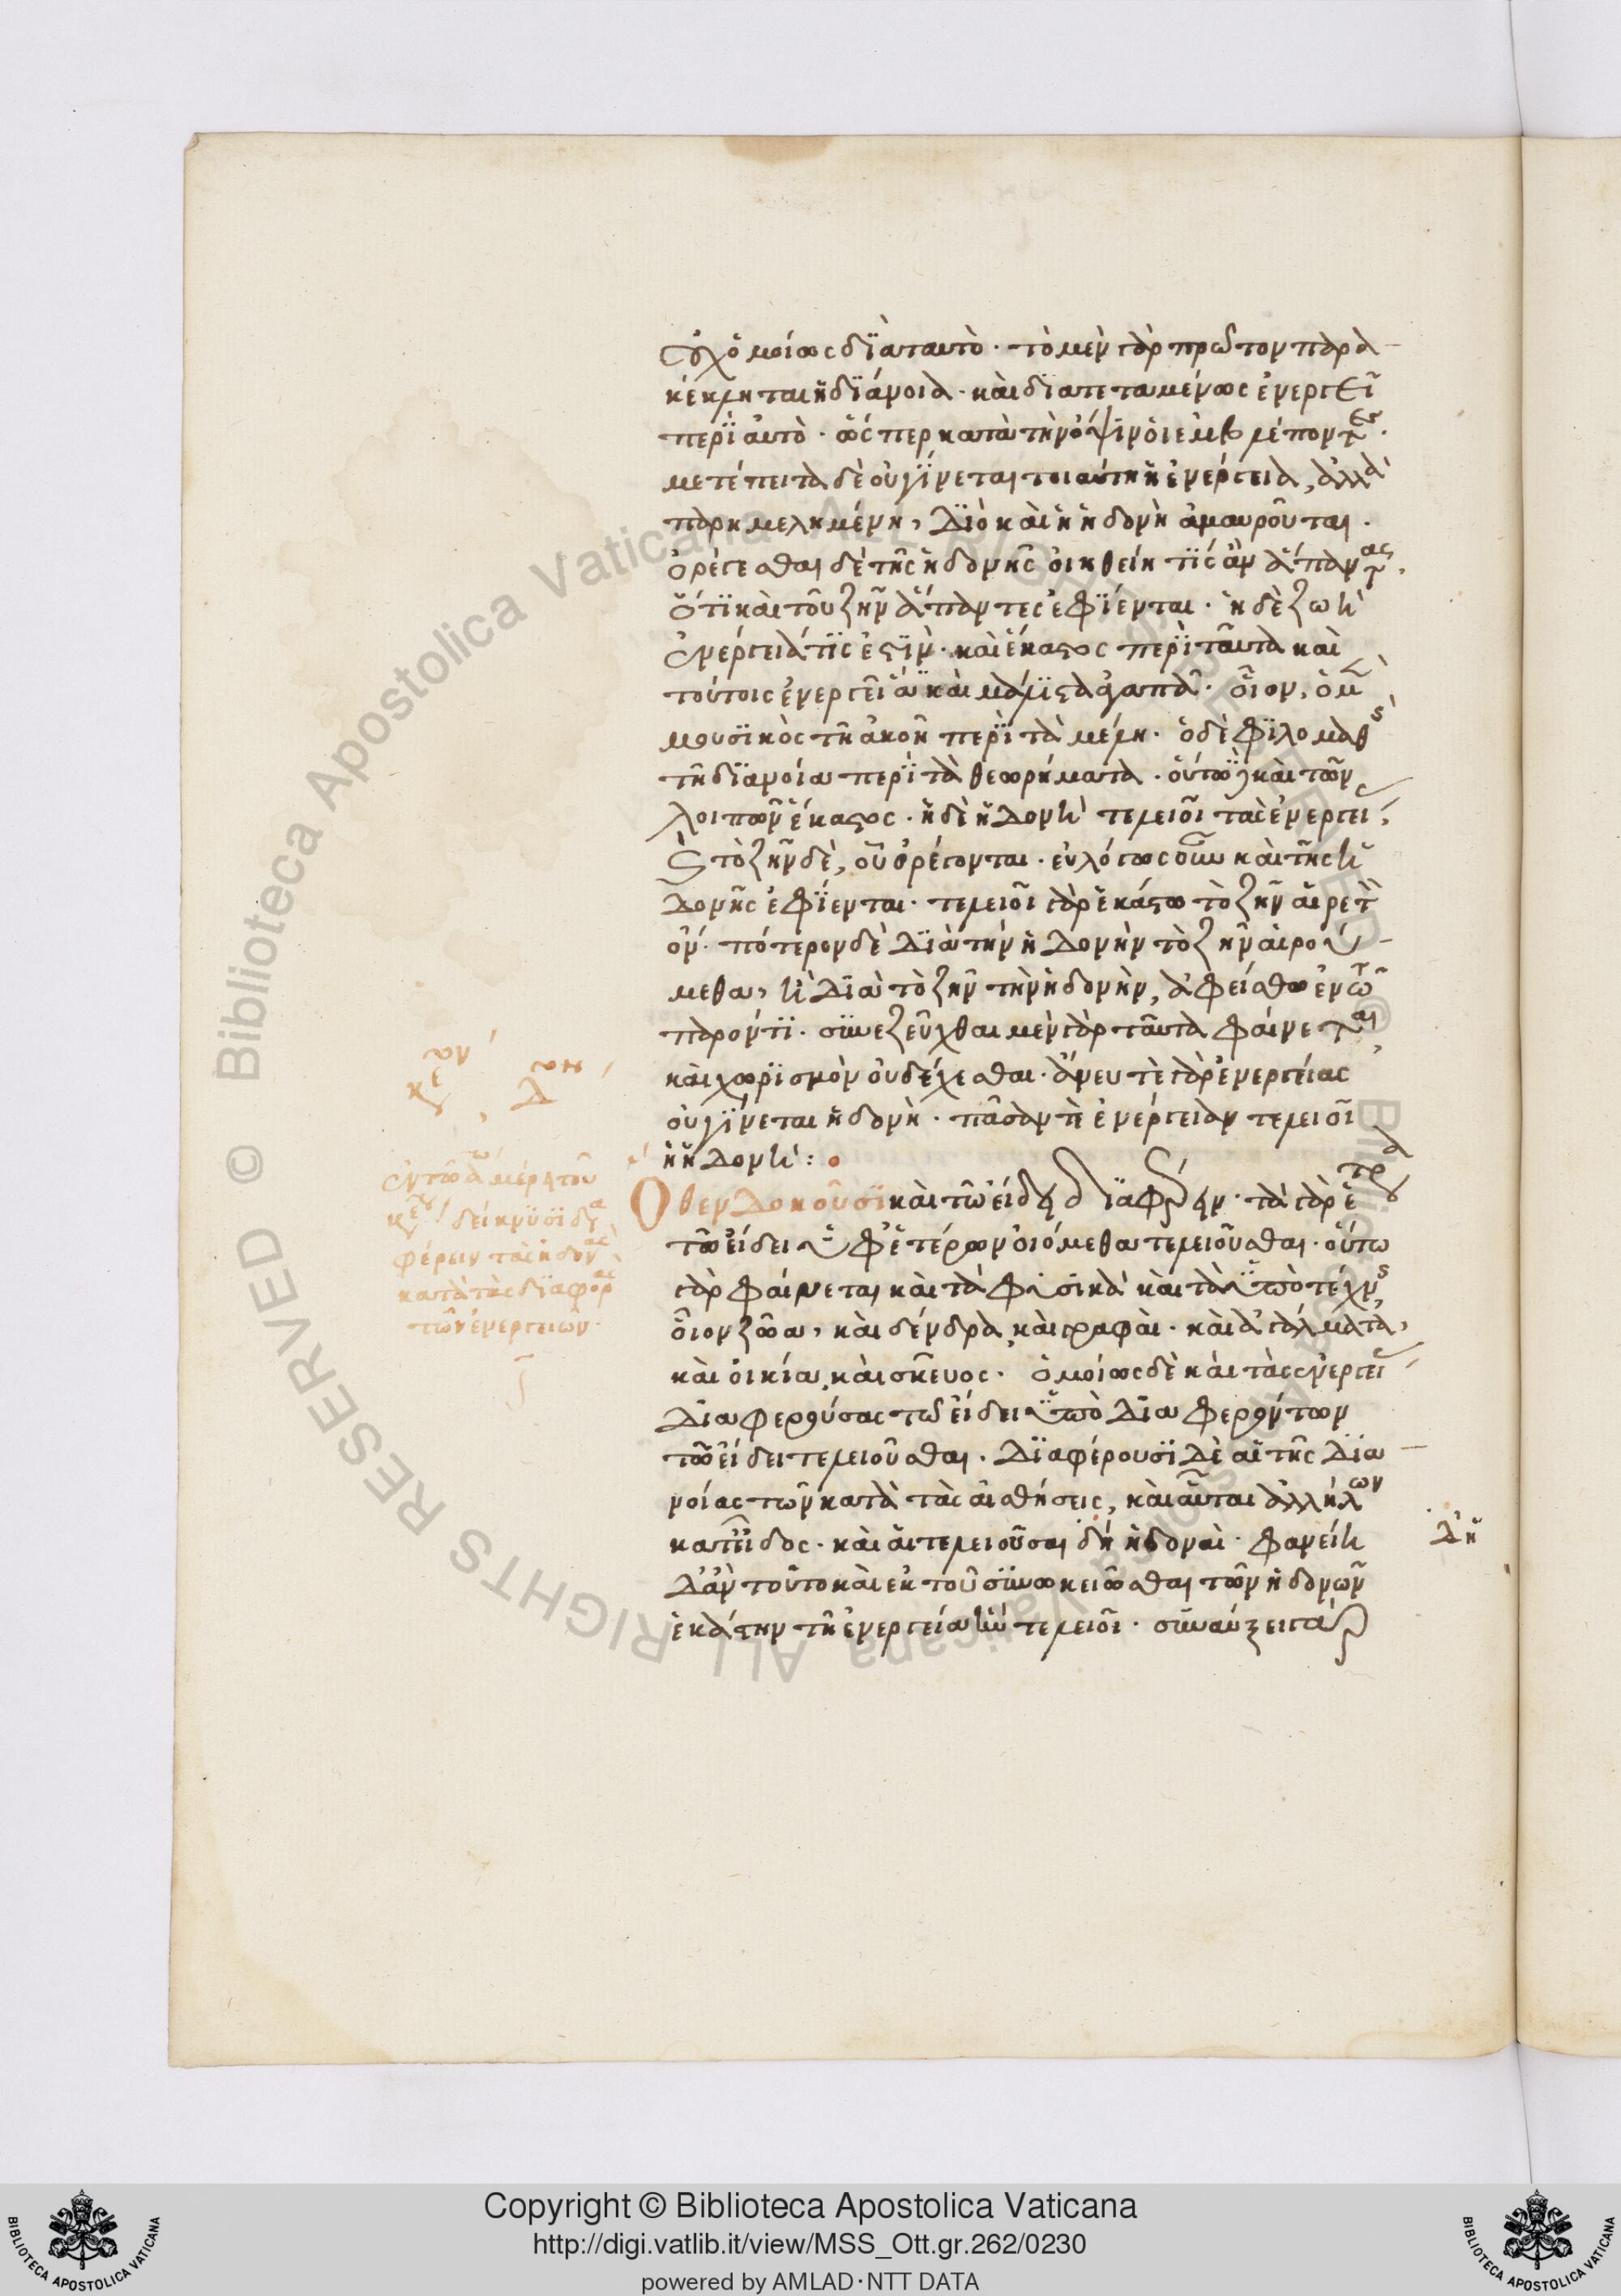 οὐχ ὁμοίως διὰ ταυτὸ· τὸ μὲν γὰρ πρῶτον παρα
κέκληται ἡ διάνοια· καὶ διατεταμένως ἐνεργεῖ
περὶ αὐτὸ· ὥσπερ κατὰ τὴν ὄψιν ὁι ἐμβλέποντες·
μετέπειτα δὲ οὐ γίνεται τοιαύτη ἡ ἐνέργεια, ἀλλὰ
παρημελημένη, διὸ καὶ ἡ ἡδονὴ ἀμαυροῦται·
ὀρέγεσθαι δὲ τῆς ἡδονῆς οἰηθείη τίς ἂν ἅπαντας,
ὅτι καὶ τοῦ ζῆν ἅπαντες ἐφίενται· ἡ δὲ ζωὴ
ἐνέργειά τίς ἐστὶν· καὶ ἕκαστος περὶ ταῦτα καὶ
τούτοις ἐνεργεῖ ἃ καὶ μάλιστα ἀγαπᾶ· οἷον, ὁ μὲν
μουσικὸς τῆ ἀκοῆ περὶ τὰ μέλη· ὁ δὲ φιλομαθὴς
τῆ διανοία περὶ τὰ θεωρήματα· οὕτω καὶ τῶν
λοιπῶν ἕκαστος· ἡ δὲ ἡδονὴ τελειοῖ τὰς ἐνεργείας·
καὶ τὸ ζῆν δὲ, οὗ ὀρέγονται· εὐλόγως οὖν καὶ τῆς ἡ
δονῆς ἐφίενται· τελειοῖ γὰρ ἑκάστω τὸ ζῆν αἱρετ
ὸν· πότερον δὲ διὰ τὴν ἡδονὴν τὸ ζῆν αἱρού
μεθα, ἢ διὰ τὸ ζῆν τὴν ἡδονὴν, ἀφείσθω ἐν τῶ
παρόντι· συνεζεῦχθαι μὲν γὰρ ταῦτα φαίνεται,
καὶ χωρισμὸν οὐ δέχεσθαι· ἄνευ τὲ γὰρ ἐνεργείας
οὐ γίνεται ἡδονὴ· πᾶσάν τὲ ἐνέργειαν τελειοῖ
ἡ ἡδονὴ:
Ὅθεν δοκοῦσι καὶ τῶ εἴδει διαφέρειν· τὰ γὰρ ἕτερα
τῶ εἴδει ὑφ' ἑτέρων οἰόμεθα τελειοῦσθαι· οὕτω
γὰρ φαίνεται καὶ τὰ φυσικὰ καὶ τὰ ὑπὸ τέχνης,
οἷον ζῶα, καὶ δένδρα, καὶ γραφαὶ· καὶ ἀγάλματα,
καὶ οἰκία, καὶ σκεῦος· ὁμοίως δὲ καὶ τὰς ἐνεργείας
διαφερούσας τῶ εἴδει ὑπὸ διαφερόντων
τῶ εἴδει τελειοῦσθαι· διαφέρουσι δὲ αἱ τῆς δια
νοίας τῶν κατὰ τὰς αἰσθήσεις, καὶ αὗται ἀλλήλων
κατ' εἶδος· καὶ αἱ τελειοῦσαι δὴ ἡδοναὶ· φανείη
δ' ἂν τοῦτο καὶ ἐκ τοῦ συνωκειῶσθαι τῶν ἡδονῶν
ἑκάστην τῆ ἐνεργεία ἣν τελειοῖ· συναύξει γὰρ
ἐν τῶ
κεφ δείκνυσι δια
φέρειν τὰς ἡδονὰς
κατὰ τὰς διαφορὰς
τῶν ἐνεργειῶν·
δὴ
© Biblioteca Apostolica Vaticana ALL RIGHTS RESERVED
Copyright © Biblioteca Apostolica Vaticana
http://digi.vatlib.it/view/MSS_Ott.gr.262/0230
powered by AMLAD·NTT DATA
BIBLIOTECA APOSTOLICA VATICANA
BIBLIOTECA APOSTOLICA VATICANA